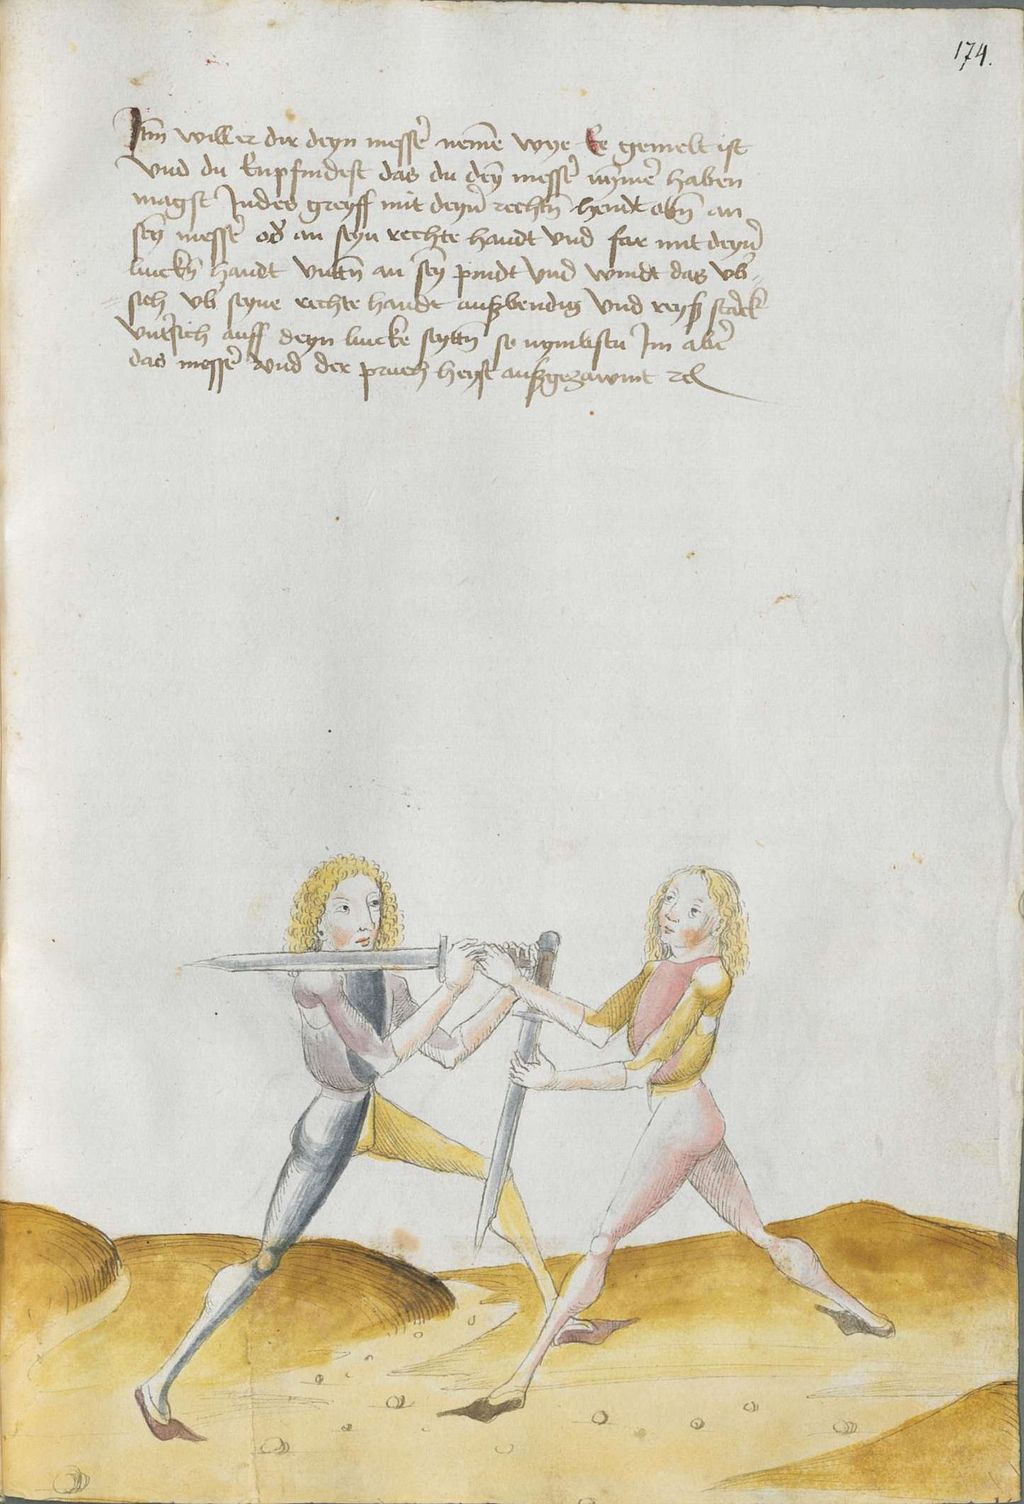 174.
Itm̄ will er dir deyn messer̄ neme͂ wye Ee gemelt ist
vnd du Enpfindest das du dey͂ messer̄ nyme͂r haben
magst Indes greyff mit deyn̄ rechtn̄ hendt obn̄ an
sey͂ messer̄ od̄ an seyn rechte handt vnd far mit deyn̄
linckn̄ handt vnttn̄ an sey͂ pindt vnd windt das vb̄-
sich vb̄ seyne rechte handt außbendig vnd reyß starck
vntersich auff deyn lincke seyttn̄ so nymbstu Im aber̄
das messer̄ vnd der pruch heyst außgezawmt rc